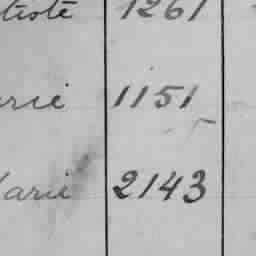 tiste 1261
erie 1151
Marie 2143